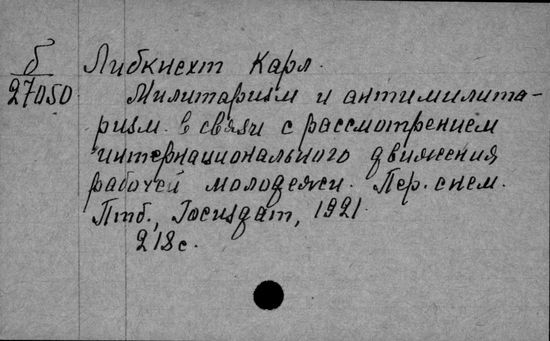 б Либкнехт Карл.
27050 Милитаризм и антимилита-
ризм в связи с рассмотрением
интернационального движения
рабочей молодежи. Пер. с нем.
Птб., Госиздат, 1921.
218 с.